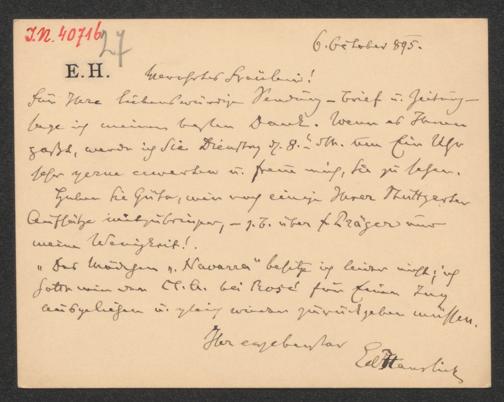 I.N. 40716
27
6. October 895.
E.H.
Verehrtes Fräulein!
Für Ihre liebenswürdige Sendung – Brief u. Zeitung –
sage ich meinen besten Dank. Wenn es Ihnen
paßt, werde ich Sie Dienstag d. 8. um Ein Uhr
sehr gerne erwarten u. freue mich, Sie zu sehen.
Haben Sie Güte, mir noch einige Ihrer Stuttgarter
Aufsätze mitzubringen, – z.B. über Präger und
meine Wenigkeit!
"Das Mädchen v. Navarra" besitze ich leider nicht; ich
hatte mir den Cl.A. bei Rosé für Einen Tag
ausgeliehen u. gleich wieder zurückgeben müssen.
Ihr ergebenster
Ed Hanslick